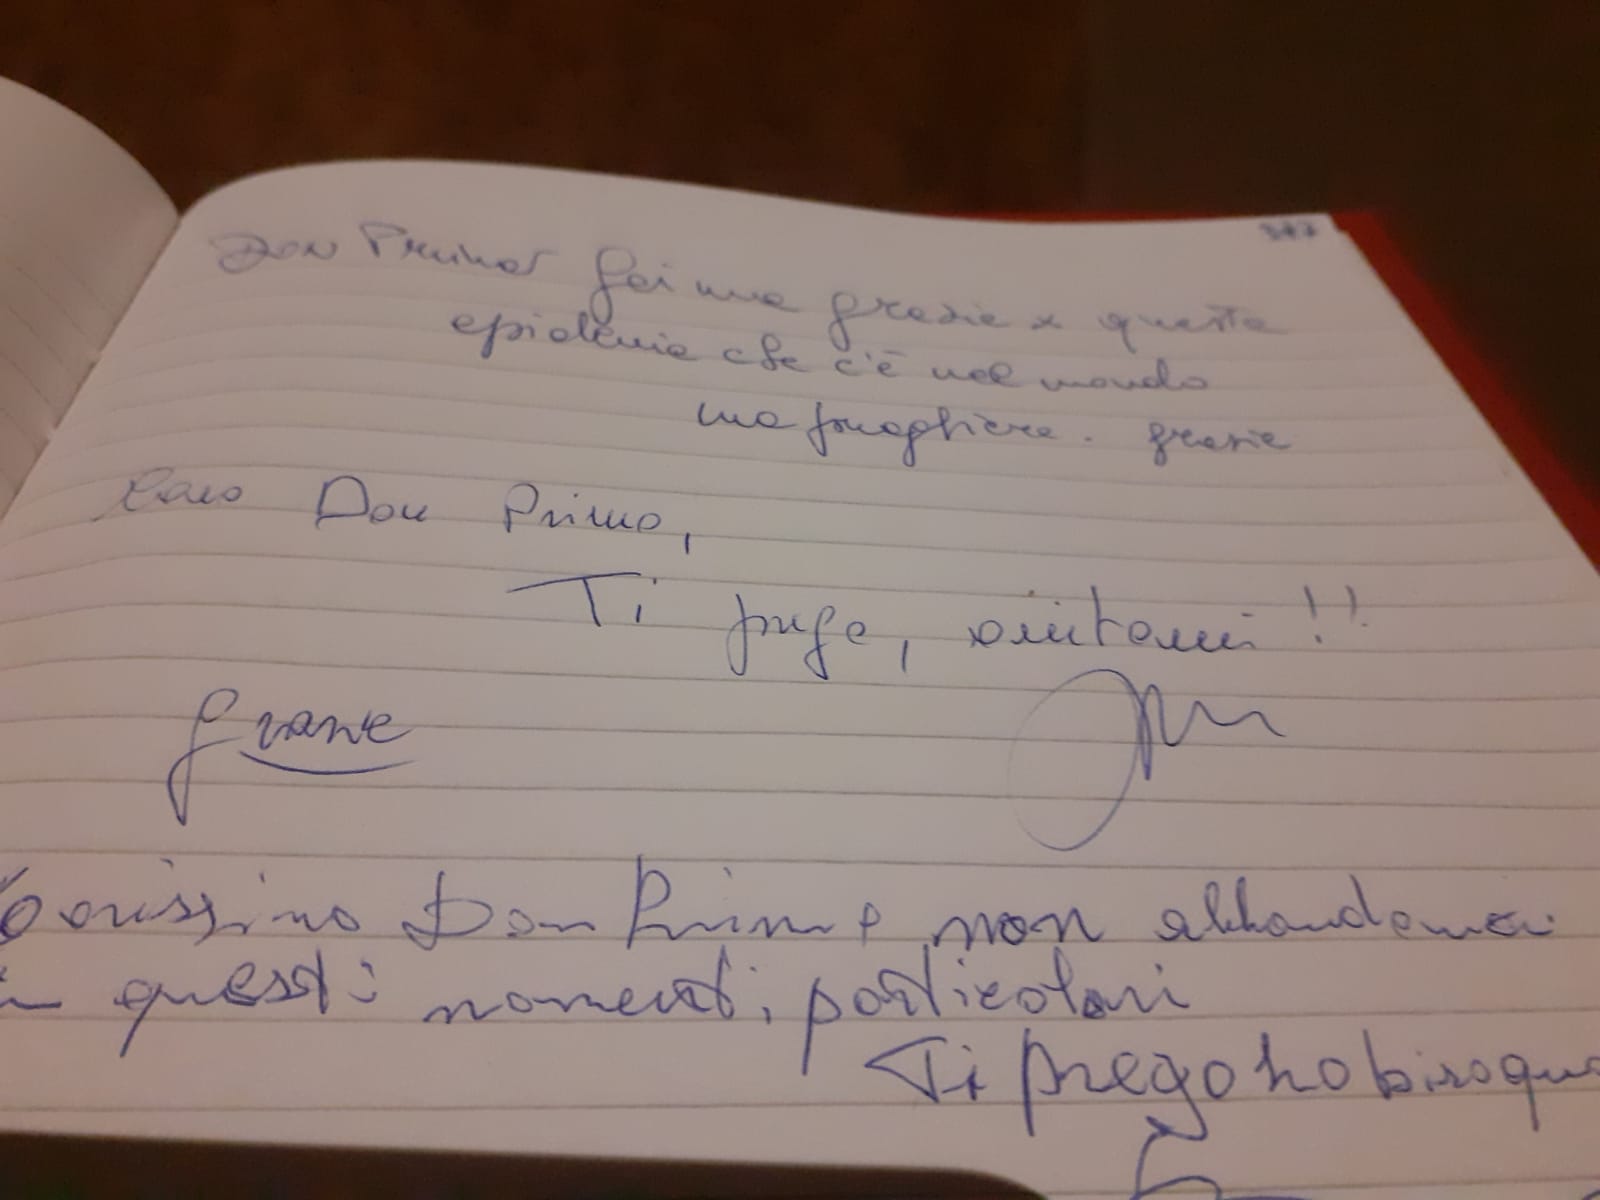 347
Don Primo fai una grazia x questa
epidemia che c'è nel mondo
una preghiera. grazie
Caro Don Primo,
Ti prego, aiutami!!
Grazie
Carissimo Don Primo non abbandonarci
in questi momenti particolari
Ti prego ho bisogno